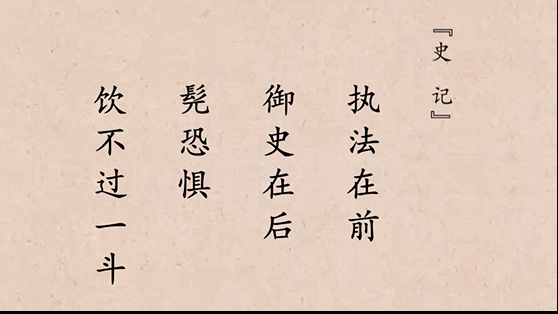 『史记』
执法在前
御史在后
髡恐惧
饮不过一斗